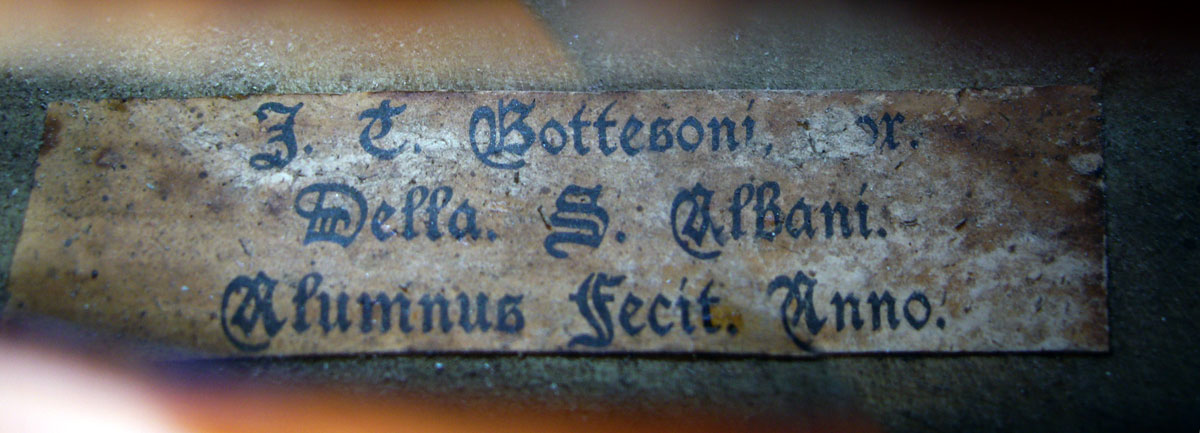 J. T. Bottesoni,
Della. S. Albani.
Alumnus Fecit. Anno.